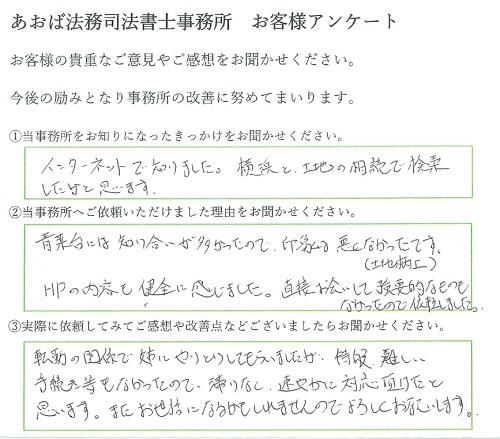 あおば法務司法書士事務所　お客様アンケート
お客様の貴重なご意見やご感想をお聞かせください。
今後の励みとなり事務所の改善に努めてまいります。
①当事務所をお知りになったきっかけをお聞かせください。
インターネットで知りました。横浜と、土地の相続で検索
したかと思います。
②当事務所へご依頼いただけました理由をお聞かせください。
青葉台には知り合いが多かったので、印象は悪くなかったです。
(土地柄上)
HPの内容も健全に感じました。直接お会いして強要的なものも
なかったので依頼しました。
③実際に依頼してみてご感想や改善点などございましたらお聞かせください。
転勤の関係で姉にやりとりしてもらいましたが、特段、難しい
手続き等もなかったので、滞りなく、速やかに対応頂けたと
思います。またお世話になるかもしれませんのでよろしくお願いします。